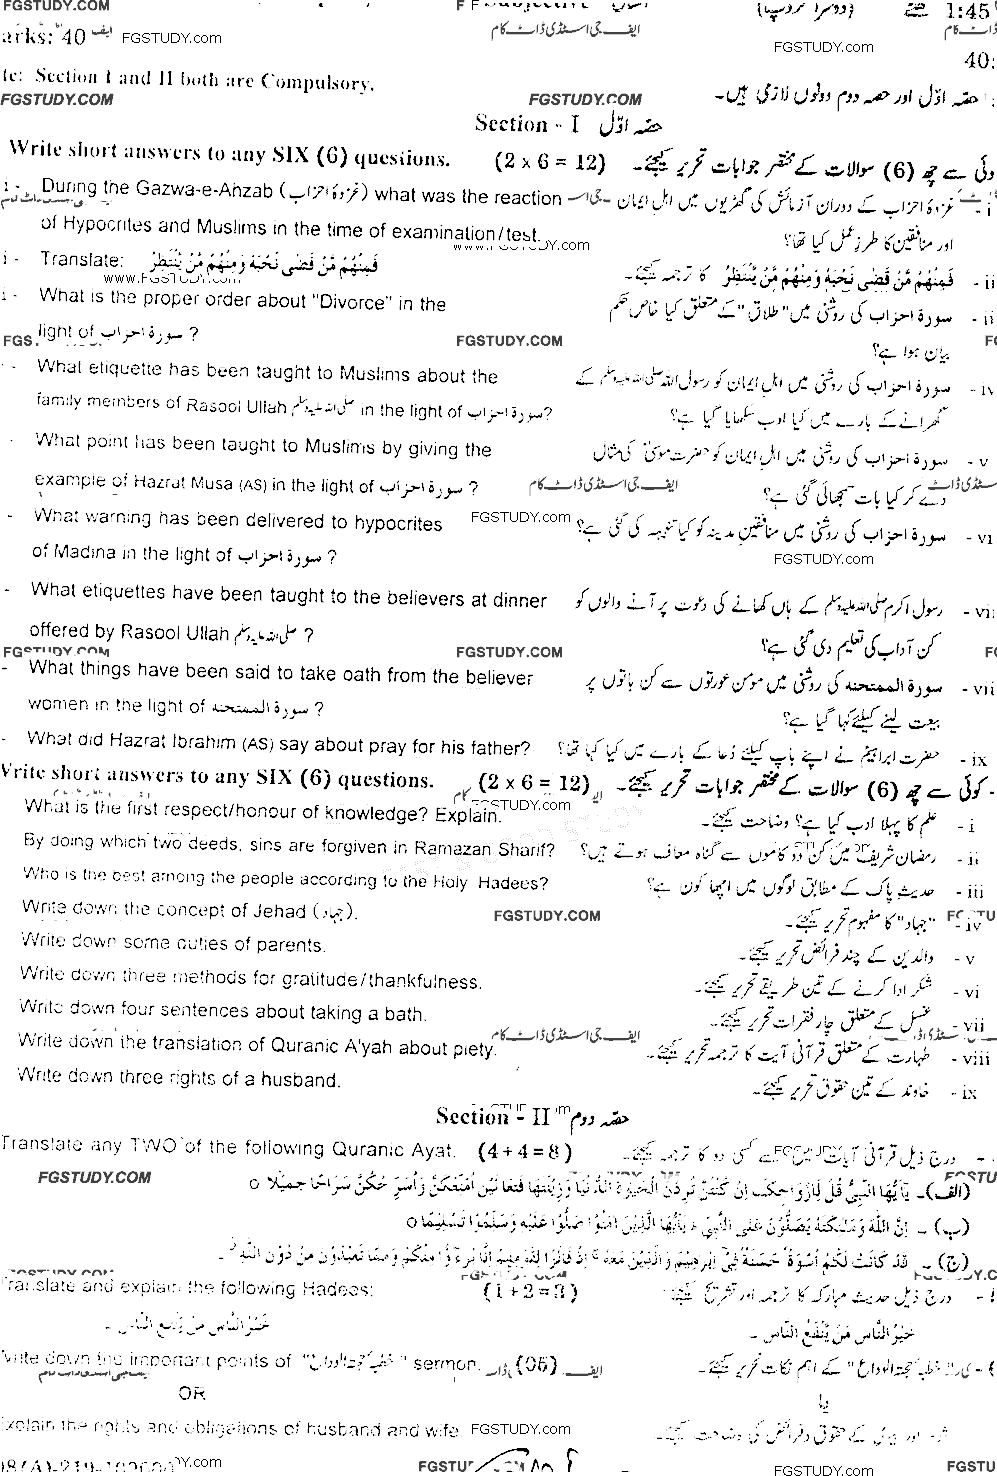 FGSTUDY.COM (دوسرا گروپ) 1:45
arks: 40 ایف FGSTUDY.com ایف جی اسٹڈی ڈاٹ کام FGSTUDY.com ڈاٹ کام
40:
te: Section I and II both are Compulsory.
FGSTUDY.COM FGSTUDY.COM حصہ اوّل اور حصہ دوم دونوں لازمی ہیں۔
Section - I حصہ اوّل
Write short answers to any SIX (6) questions. (2 x 6 = 12) کوئی سے چھ (6) سوالات کے مختصر جوابات تحریر کیجئے۔
During the Gazwa-e-Ahzab (غزوۂ احزاب) what was the reaction غزوۂ احزاب کے دوران آزمائش کی گھڑیوں میں اہل ایمان - i
of Hypocrites and Muslims in the time of examination/test. اور منافقین کا طرزِ عمل کیا تھا؟
www.FGSTUDY.com
i - Translate: فَمِنْهُمْ مَّنْ قَضٰى نَحْبَهٗ وَمِنْهُمْ مَّنْ يَّنْتَظِرُ فَمِنْهُمْ مَّنْ قَضٰى نَحْبَهٗ وَمِنْهُمْ مَّنْ يَّنْتَظِرُ کا ترجمہ کیجئے۔ - ii
www.FGSTUDY.com
What is the proper order about "Divorce" in the سورۃ احزاب کی روشنی میں "طلاق" کے متعلق کیا خاص حکم - ii
light of سورۃ احزاب ? بیان ہوا ہے؟
FGS. FGSTUDY.COM FG
What etiquette has been taught to Muslims about the سورۃ احزاب کی روشنی میں اہل ایمان کو رسول اللہ صلی اللہ علیہ وسلم کے - iv
family members of Rasool Ullah صلی اللہ علیہ وسلم in the light of سورۃ احزاب? گھرانے کے بارے میں کیا ادب سکھایا گیا ہے؟
What point has been taught to Muslims by giving the سورۃ احزاب کی روشنی میں اہل ایمان کو حضرت موسیٰ کی مثال - v
example of Hazrat Musa (AS) in the light of سورۃ احزاب ? دے کر کیا بات سمجھائی گئی ہے؟
ایف جی اسٹڈی ڈاٹ کام اسٹڈی ڈاٹ
What warning has been delivered to hypocrites FGSTUDY.com سورۃ احزاب کی روشنی میں منافقین مدینہ کو کیا تنبیہہ کی گئی ہے؟ - vi
of Madina in the light of سورۃ احزاب ? FGSTUDY.com
What etiquettes have been taught to the believers at dinner رسول اکرم صلی اللہ علیہ وسلم کے ہاں کھانے کی دعوت پر آنے والوں کو - vii
offered by Rasool Ullah صلی اللہ علیہ وسلم ? کن آداب کی تعلیم دی گئی ہے؟
FGSTUDY.COM FGSTUDY.COM FG
What things have been said to take oath from the believer سورۃ الممتحنہ کی روشنی میں مومن عورتوں سے کن باتوں پر - vii
women in the light of سورۃ الممتحنہ ? بیعت لینے کیلئے کہا گیا ہے؟
What did Hazrat Ibrahim (AS) say about pray for his father? حضرت ابراہیمؑ نے اپنے باپ کیلئے دُعا کے بارے میں کیا کہا تھا؟ - ix
Write short answers to any SIX (6) questions. (2 x 6 = 12) کوئی سے چھ (6) سوالات کے مختصر جوابات تحریر کیجئے۔
FGSTUDY.com
What is the first respect/honour of knowledge? Explain. علم کا پہلا ادب کیا ہے؟ وضاحت کیجئے۔ - i
By doing which two deeds, sins are forgiven in Ramazan Sharif? رمضان شریف میں کن دو کاموں سے گناہ معاف ہوتے ہیں؟ - ii
Who is the best among the people according to the Holy Hadees? حدیث پاک کے مطابق لوگوں میں اچھا کون ہے؟ - iii
Write down the concept of Jehad (جہاد). FGSTUDY.COM "جہاد" کا مفہوم تحریر کیجئے۔ - iv
Write down some duties of parents. والدین کے چند فرائض تحریر کیجئے۔ - v
Write down three methods for gratitude/thankfulness. شکر ادا کرنے کے تین طریقے تحریر کیجئے۔ - vi
Write down four sentences about taking a bath. غسل کے متعلق چار فقرات تحریر کیجئے۔ - vii
Write down the translation of Quranic A'yah about piety. ایف جی اسٹڈی ڈاٹ کام طہارت کے متعلق قرآنی آیت کا ترجمہ تحریر کیجئے۔ - viii
Write down three rights of a husband. خاوند کے تین حقوق تحریر کیجئے۔ - ix
Section - II حصہ دوم
Translate any TWO of the following Quranic Ayat. (4+4=8) درج ذیل قرآنی آیات میں سے کسی دو کا ترجمہ کیجئے۔
FGSTUDY.COM
(الف)۔ يٰٓاَيُّهَا النَّبِيُّ قُلْ لِّاَزْوَاجِكَ اِنْ كُنْتُنَّ تُرِدْنَ الْحَيٰوةَ الدُّنْيَا وَزِيْنَتَهَا فَتَعَالَيْنَ اُمَتِّعْكُنَّ وَاُسَرِّحْكُنَّ سَرَاحًا جَمِيْلًا ○
(ب)۔ اِنَّ اللّٰهَ وَمَلٰٓئِكَتَهٗ يُصَلُّوْنَ عَلَى النَّبِيِّ يٰٓاَيُّهَا الَّذِيْنَ اٰمَنُوْا صَلُّوْا عَلَيْهِ وَسَلِّمُوْا تَسْلِيْمًا ○
(ج)۔ قَدْ كَانَتْ لَكُمْ اُسْوَةٌ حَسَنَةٌ فِيْٓ اِبْرٰهِيْمَ وَالَّذِيْنَ مَعَهٗ اِذْ قَالُوْا لِقَوْمِهِمْ اِنَّا بُرَءٰٓؤُا مِنْكُمْ وَمِمَّا تَعْبُدُوْنَ مِنْ دُوْنِ اللّٰهِ
Translate and explain the following Hadees: (1+2=3) درج ذیل حدیث مبارکہ کا ترجمہ اور تشریح کیجئے۔
خَيْرُ النَّاسِ مَنْ يَّنْفَعُ النَّاسَ ۔ خَيْرُ النَّاسِ مَنْ يَّنْفَعُ النَّاسَ ۔
Write down the important points of "خطبہ حجۃ الوداع" sermon. (05) "خطبہ حجۃ الوداع" کے اہم نکات تحریر کیجئے۔
OR یا
Explain the rights and obligations of husband and wife FGSTUDY.com بیوی کے حقوق و فرائض کی وضاحت کیجئے۔
FGSTU FGSTUDY.com FGSTU